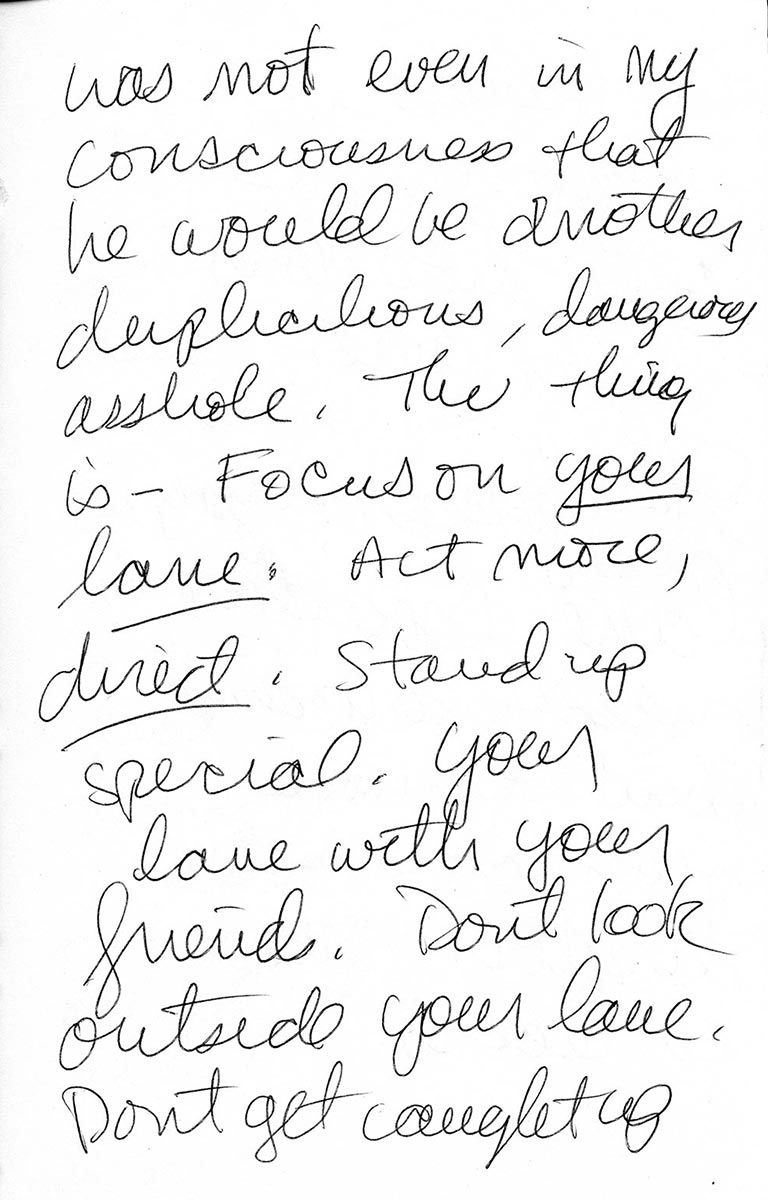 was not even in my
consciousness that
he would be another
duplicitous, dangerous
asshole. The thing
is – Focus on your
lane. Act more,
direct. Stand up
special. Your
lane with your
friends. Don't look
outside your lane.
Don't get caught up